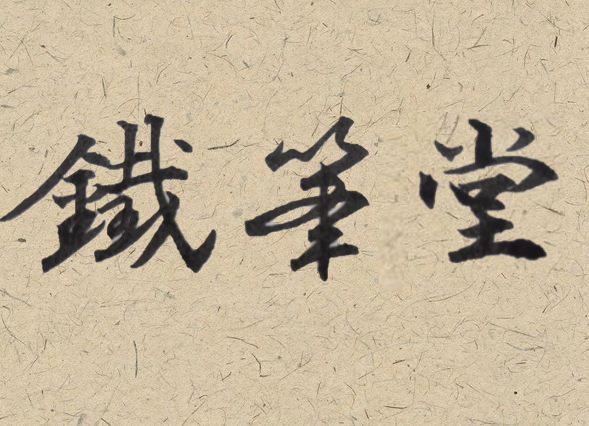 鐵筆堂